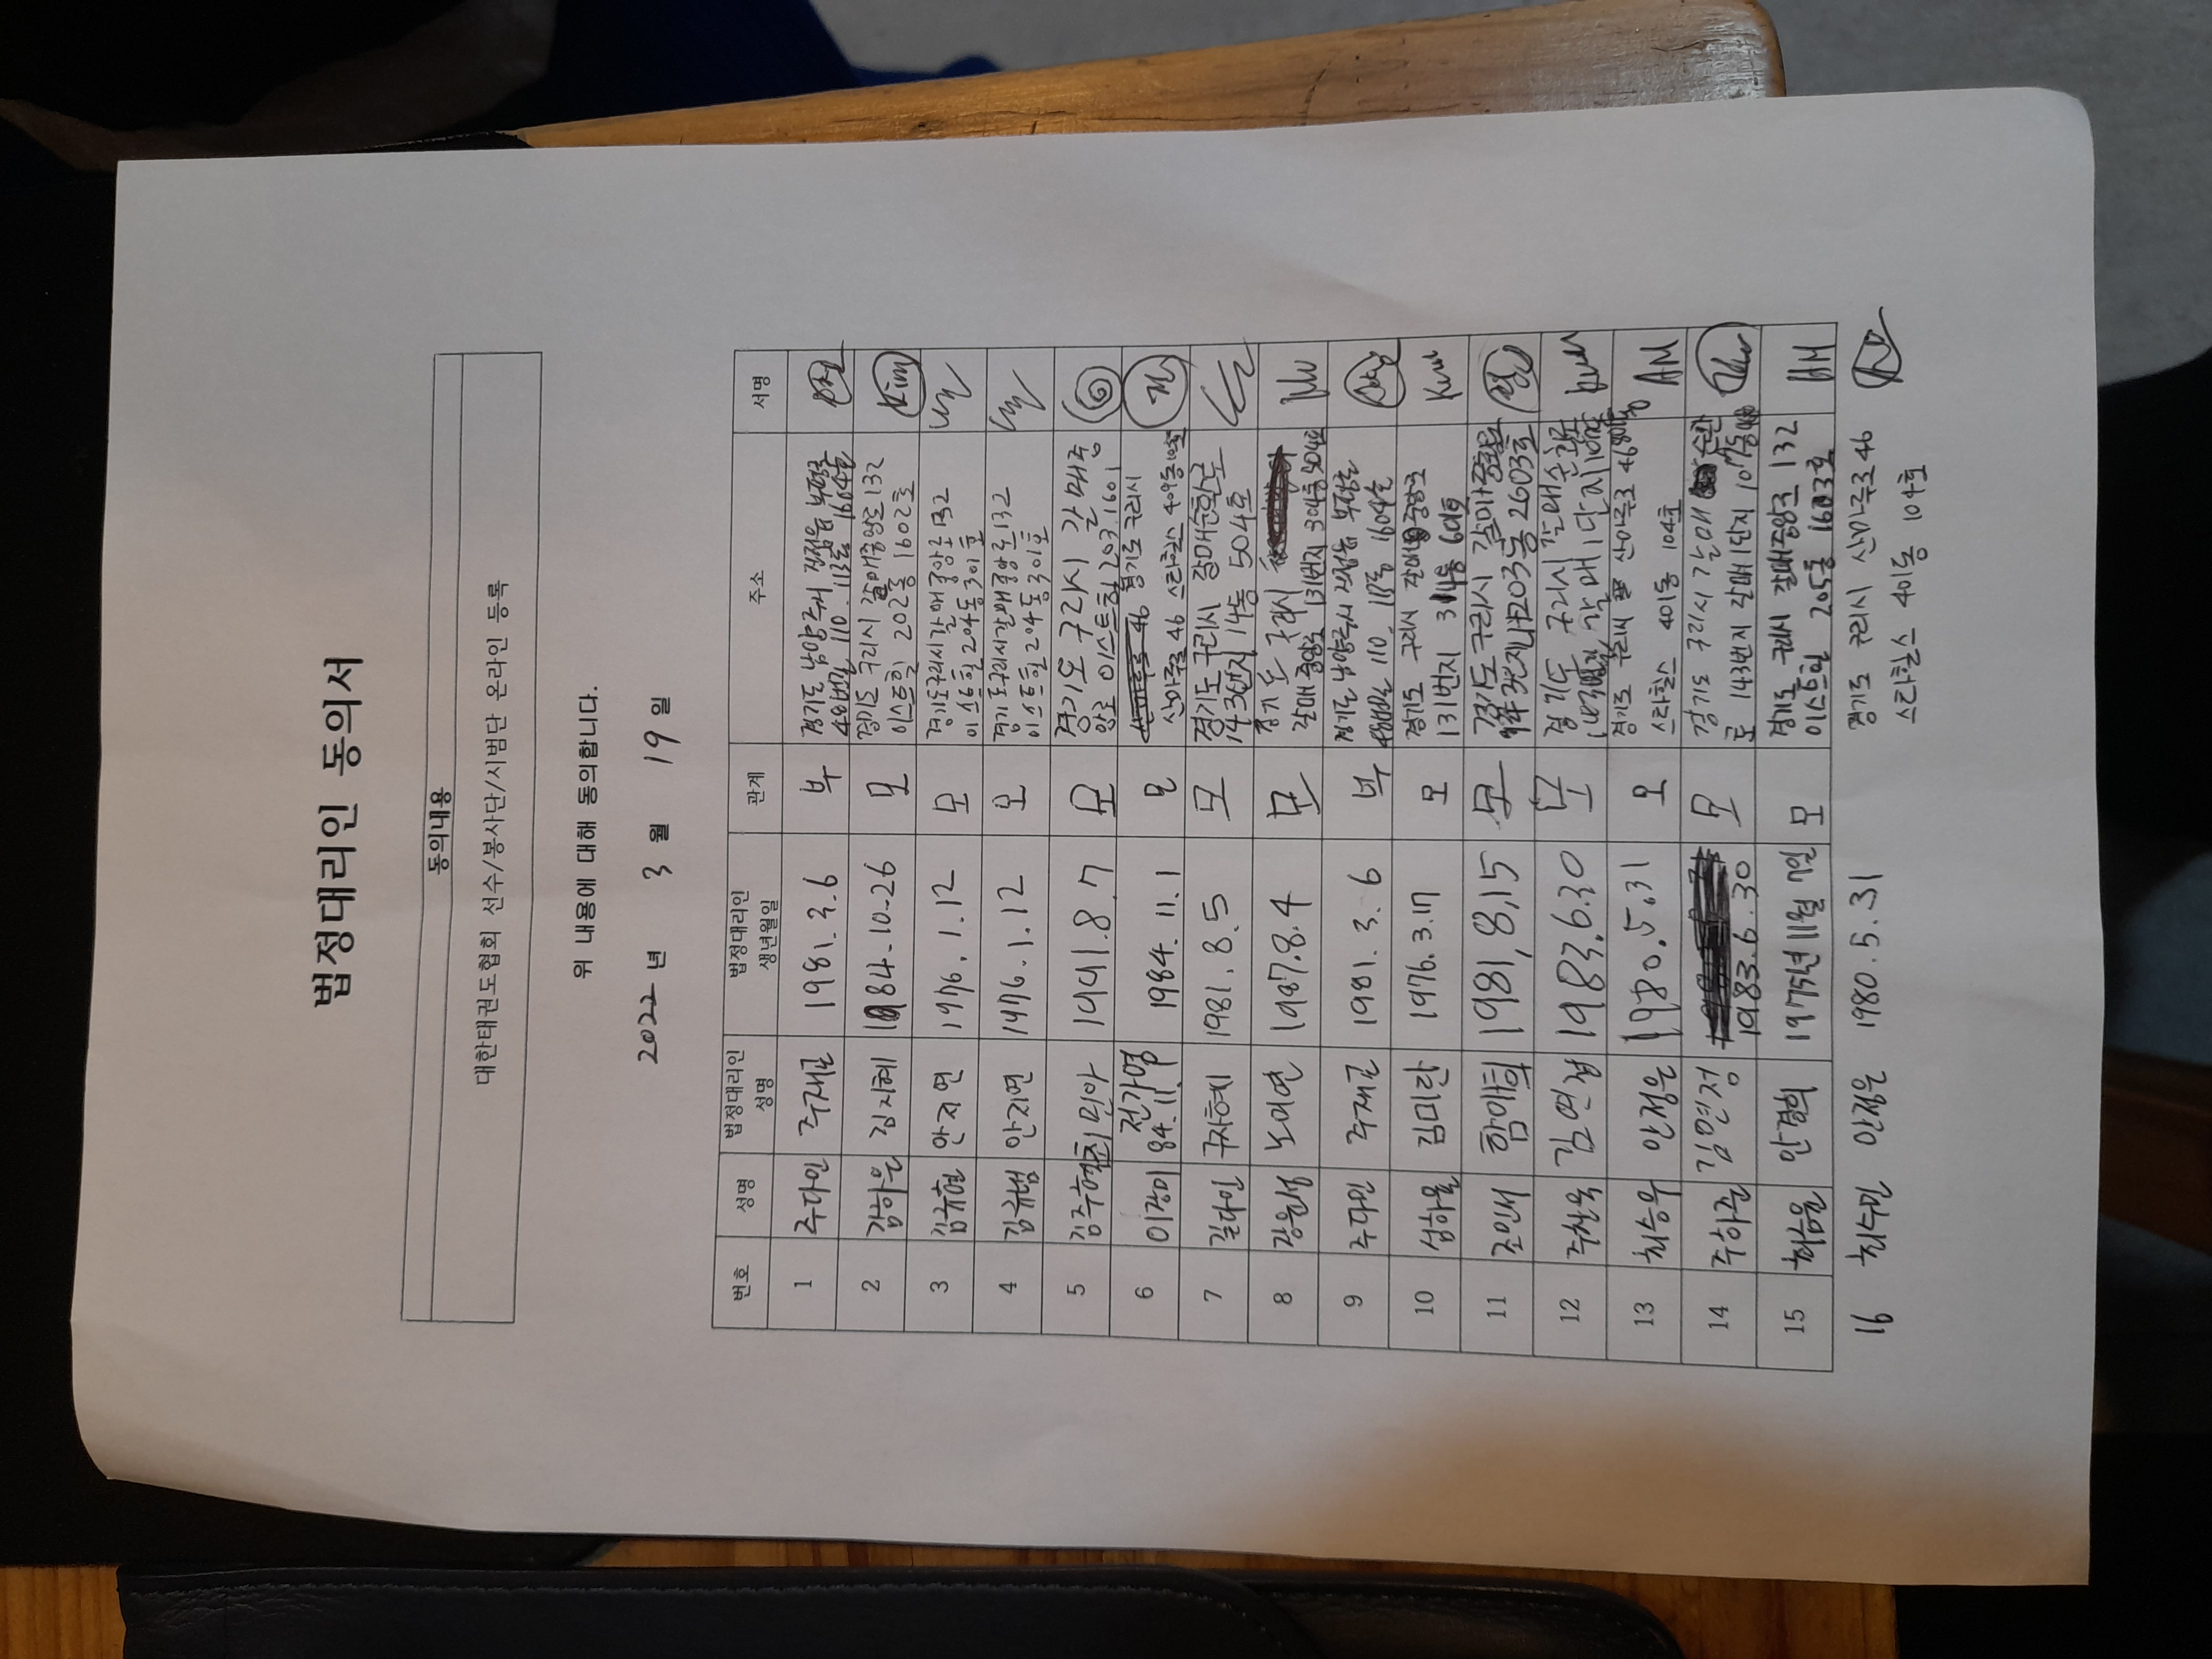 법정대리인 동의서
동의내용
대한태권도협회 선수/봉사단/시범단 온라인 등록
위 내용에 대해 동의합니다.
2022 년 3 월 19 일
번호 성명 법정대리인 성명 법정대리인 생년월일 관계 주소 서명
1 주다인 주재근 1981.3.6 부 경기도 남양주시
110. 113동 1604호
2 김하은 김지혜 1984-10-26 모 경기도 구리시 갈매중앙로 132
이스트힐 202동 1602호 Kim
3 김규현 안지연 1976.1.12 모 경기도 구리시 갈매중앙로 132
이스트힐 204동 301호
4 김규범 안지연 1976.1.12 모 경기도 구리시 갈매중앙로 132
이스트힐 204동 301호
5 김주혁 최민아 1991.8.7 모 경기도 구리시 갈매중
앙로 이스트힐 203.1601
6 이장미 전가영 84.11.1 1984.11.1 모 경기도 구리시
산마루로 46 스타힐스 409동
7 길다인 구자혜 1981.8.5 모 경기도 구리시 갈매순환로
143번지 14동 504호
8 강윤성 노미연 1987.8.4 모 경기도 구리시
갈매중앙로 131번지 304동 504호
9 주다민 주재근 1981.3.6 부 경기도 남양주시
110. 113동 1604호
10 섭하율 김미란 1976.3.17 모 경기도 구리시 갈매중앙로
131번지 314동 601호 Kim
11 조민새 함아희 1981,8,15 모 경기도 구리시 갈매중앙로
203동 2603호
12 주찬욱 김연정 1983.6.30 모 경기도 구리시 갈매순환로
갈매1단지
13 최승우 안정은 1980.5.31 모 경기도 구리시 산마루로 46
스타힐스 401동 104호 AM
14 주하준 김연정 1983.6.30 모 경기도 구리시 갈매순환
로 143번지 갈매1단지
15 최유을 안결희 1975년 11월 7일 모 경기도 구리시 갈매중앙로 132
이스트힐 205동 1603호 AM
16 최수민 안정은 1980.5.31 경기도 구리시 산마루로 46
스타힐스 401동 104호